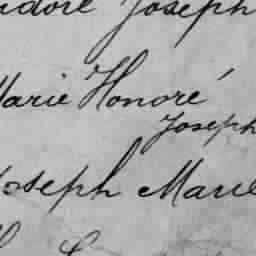 Isidore Joseph
Marie Honoré
Joseph
Joseph Marie